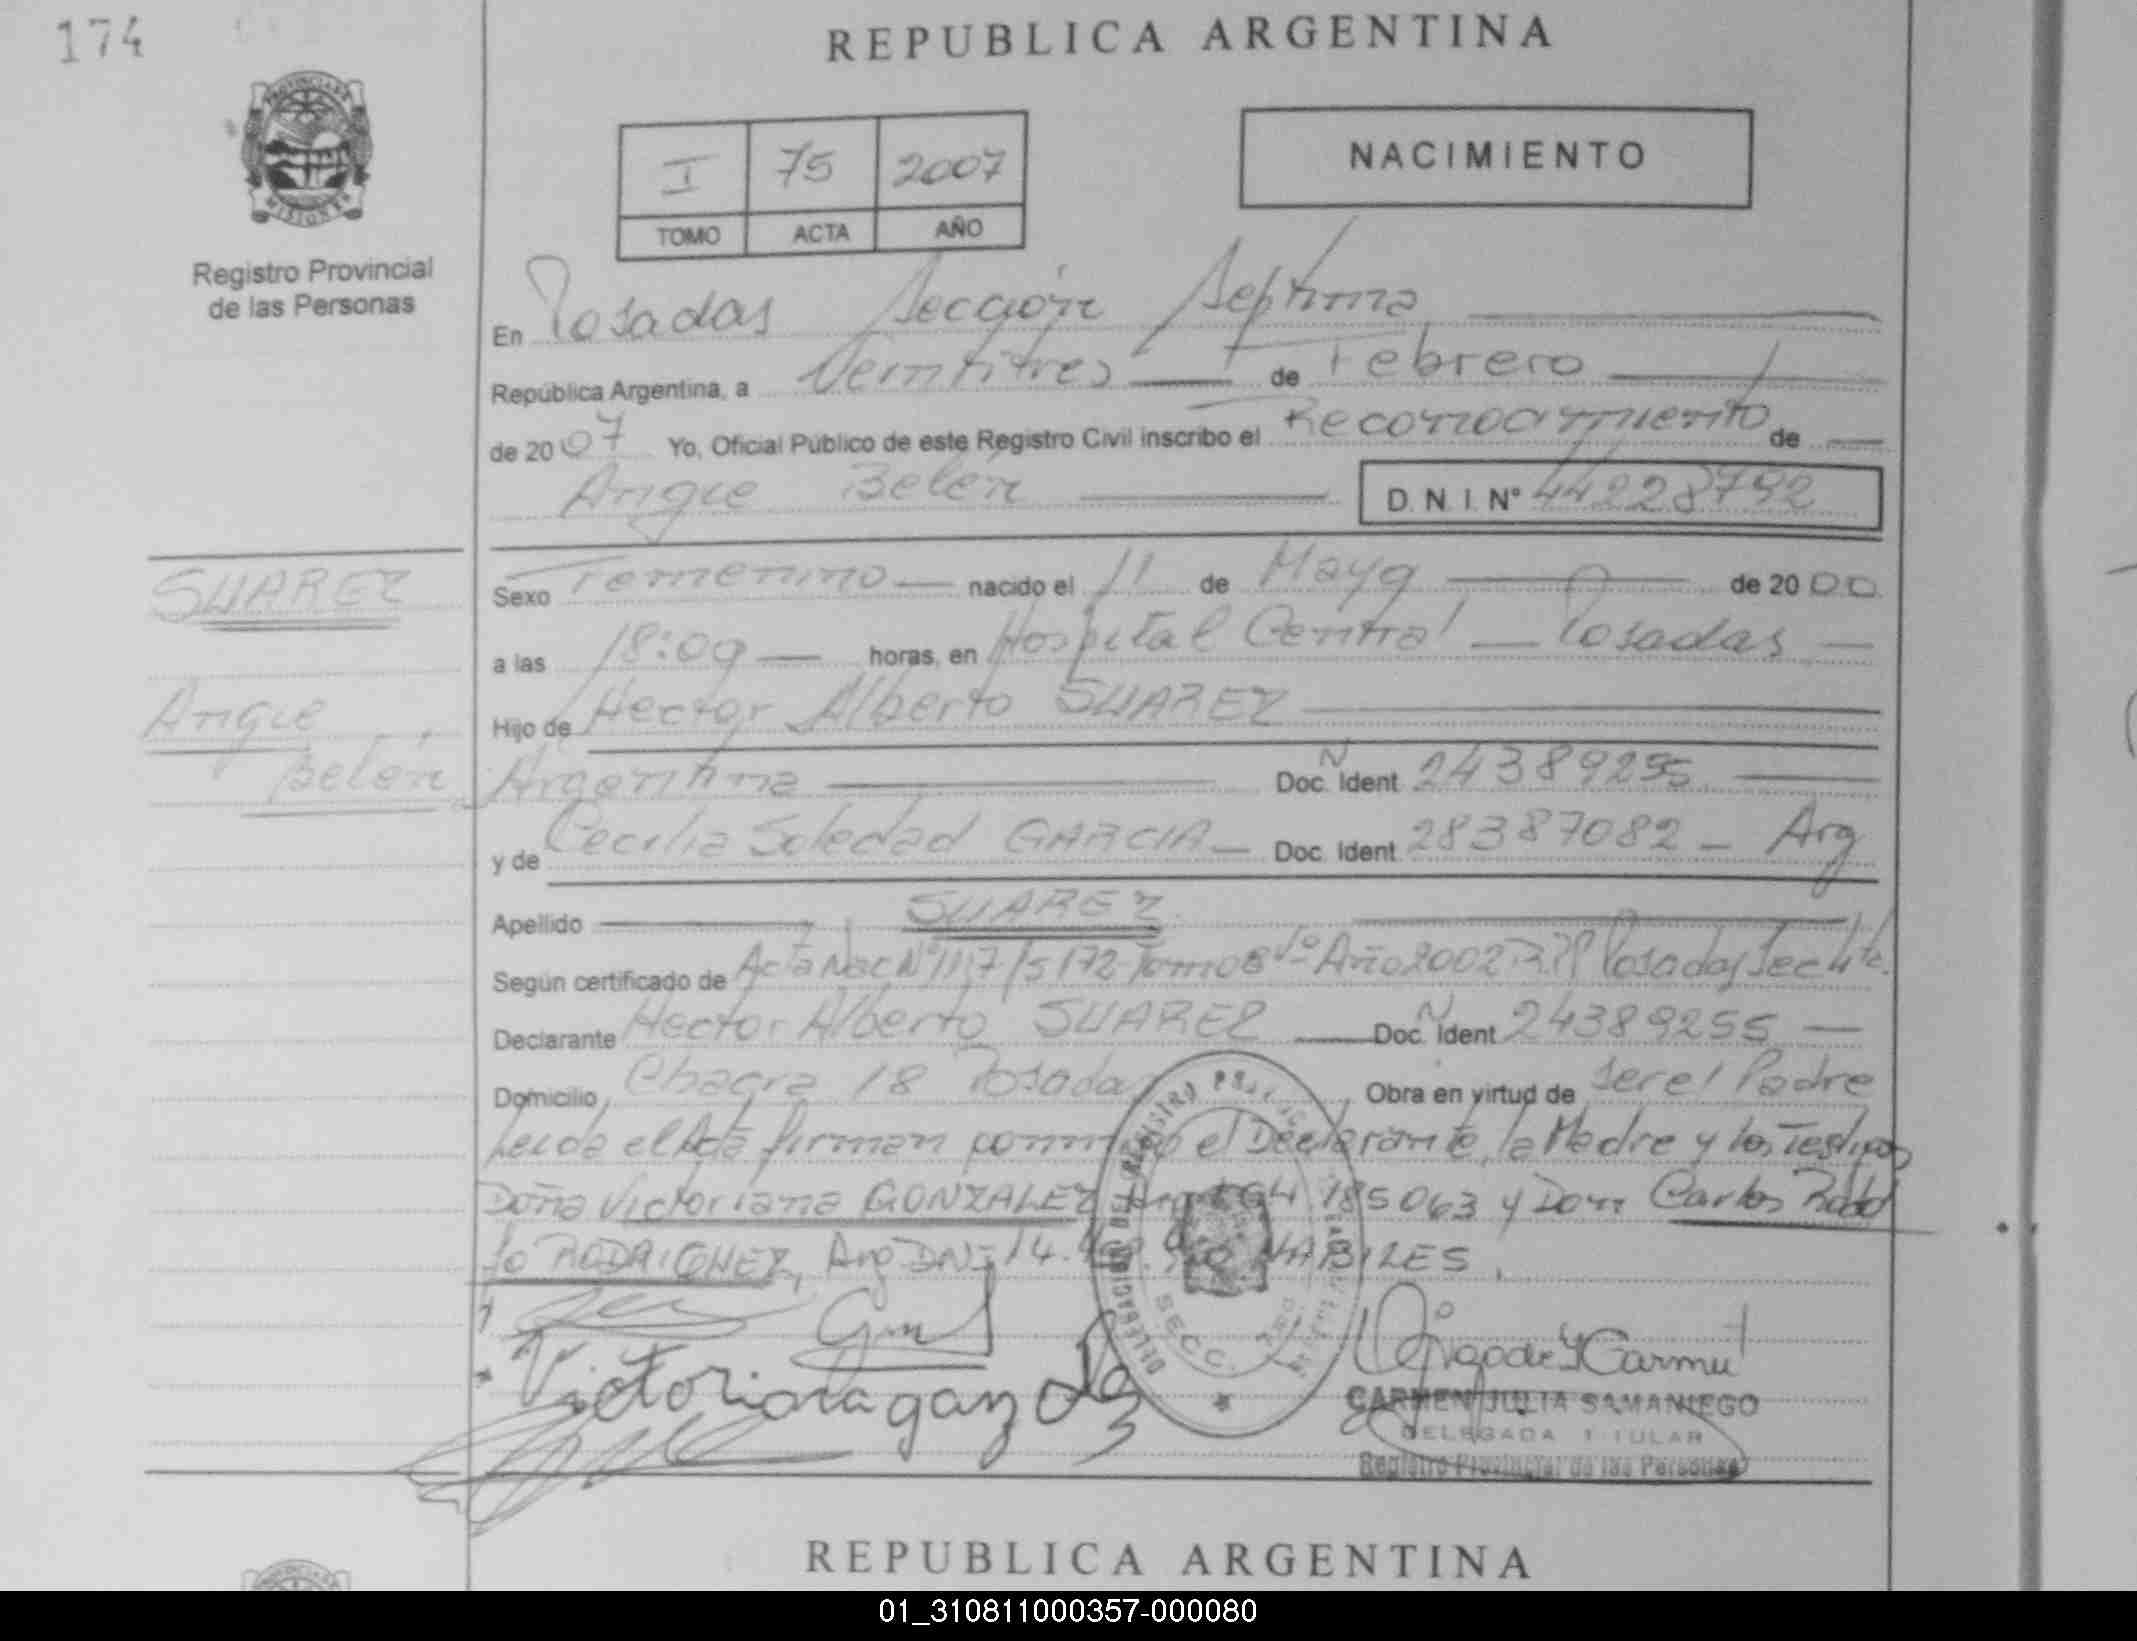 174
REPUBLICA ARGENTINA
PROVINCIA DE
MISIONES
Registro Provincial
de las Personas
I 75 2007
TOMO ACTA AÑO
NACIMIENTO
En Posadas Sección Septima
República Argentina, a Veintitres de Febrero
de 2007 Yo, Oficial Público de este Registro Civil inscribo el Reconocimiento de
Angie Belén D.N.I. Nº 44228792
SUAREZ
Angie
Belén
Sexo Femenino nacido el 11 de Mayo de 2000
a las 18:09 horas, en Hospital Central Posadas
Hijo de Hector Alberto SUAREZ
Argentina Doc. Ident 24389255
y de Cecilia Soledad GARCIA Doc. Ident 28387082 - Arg
Apellido SUAREZ
Según certificado de Acta Nac Nº 1117/5172 Tomo 8vo Año 2002 Posadas Sec 4ta.
Declarante Hector Alberto SUAREZ Doc. Ident 24389255
Domicilio Chacra 18 Posadas Obra en virtud de ser el Padre
Leida el Acta firman conmigo el Declarante, la Madre y los Testigos
Doña Victoriana GONZALEZ 185063 y Don Carlos Rodol
fo RODRIGUEZ, Arg DNI 14. HABILES.
Victoriana gonzalez
CARMEN JULIA SAMANIEGO
DELEGADA TITULAR
Registro Provincial de las Personas
REPUBLICA ARGENTINA
01_310811000357-000080